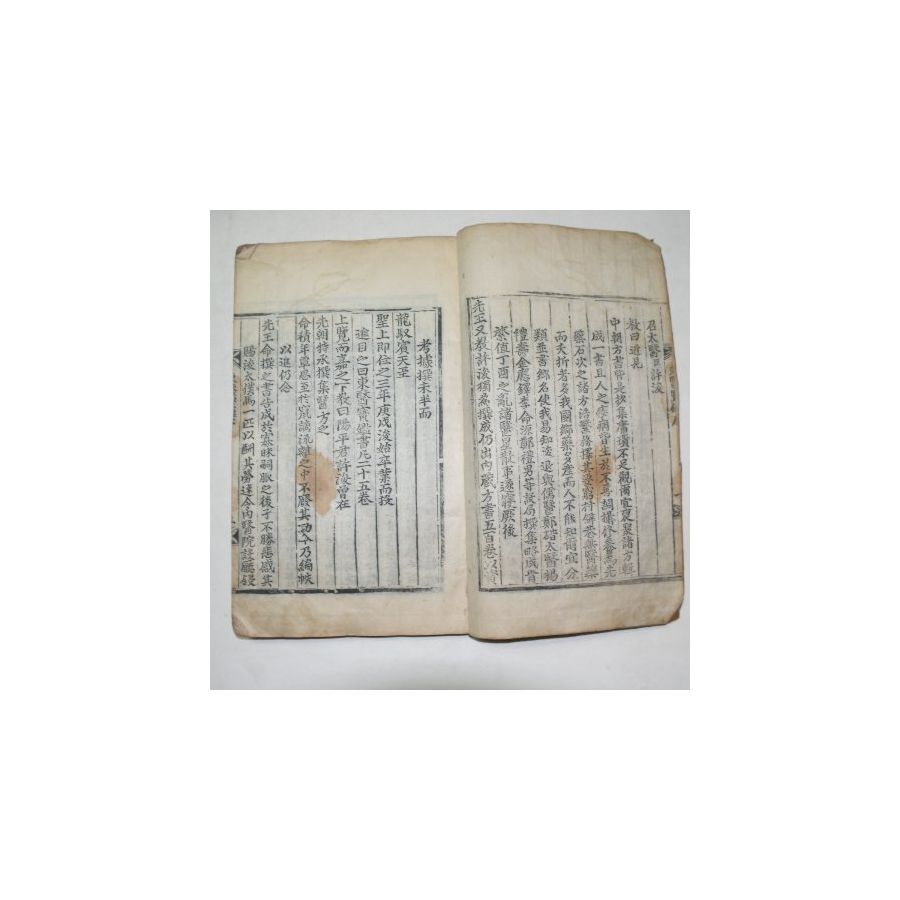 召太醫許浚
教曰近見
中朝方書皆是抄集庸瑣不足觀爾宜裒聚諸方輯
成一書且人之疾病皆生於不善調攝修養爲先
藥石次之諸方浩繁務擇其要窮村僻巷無醫藥
而夭折者多我國鄕藥多產而人不能知爾宜分
類並書鄕名使民易知浚退與儒醫鄭碏太醫楊
禮壽金應鐸李命源鄭禮男等設局撰集略成肯
綮値丁酉之亂諸醫星散事遂寢厥後
先王又敎許浚獨爲撰成仍出內藏方書五百卷以資
考據撰未半而
龍馭賓天至
聖上卽位之三年庚戌浚始卒業而投
進目之曰東醫寶鑑書凡二十五卷
上覽而嘉之下敎曰陽平君許浚曾在
先朝特承撰集醫方之
命積年覃思至於竄謫流離之中不廢其功今乃編帙
以進仍念
先王命撰之書告成於寡昧嗣服之後予不勝悲感其
賜浚太僕馬一匹以酬其勞速令內醫院設廳鋟